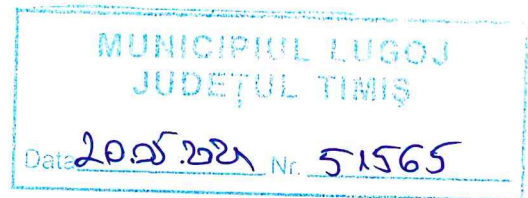 MUNICIPIUL LUGOJ
JUDEȚUL TIMIȘ
Data Nr. 51565